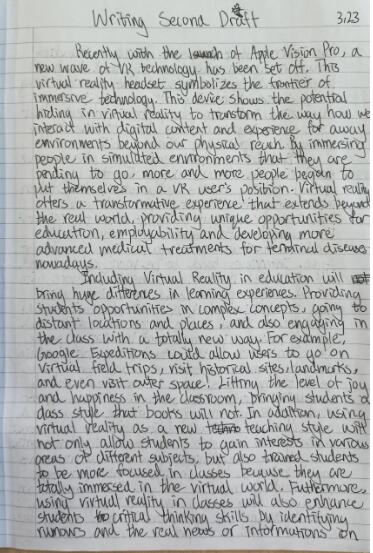 Writing Second Draft 3,23
Recently with the launch of Apple Vision Pro, a
new wave of VR technology has been set off. This
virtual reality headset symbolizes the frontier of
immersive technology. This device shows the potential
hiding in virtual reality to transform the way how we
interact with digital content and experience far away
environments beyond our physical reach. By immersing
people in simulated environments that they are
pending to go, more and more people begoin to
put themselves in a VR user's position. Virtual reality
offers a transformative experience that extends beyond
the real world, providing unique opportunities for
education, employability and developing more
advanced medical treatments for terminal disease
nowadays.
Including Virtual Reality in education will
bring huge differences in learning experiences. Providing
students opportunities in complex concepts, going to
distant locations and places, and also engaging in
the class with a totally new way. For example,
Google Expeditions could allow users to go on
virtual field trips, visit historical sites/landmarks,
and even visit outer space! Lifting the level of joy
and happiness in the classroom, bringing students a
class style that books will not. In addition, using
virtual reality as a new teaching style will
not only allow students to gain interests in various
areas of different subjects, but also trained students
to be more focused in classes because they are
totally immersed in the virtual world. Futhermore,
using virtual reality in classes will also enhance
students critical thinking skills by identifying
rumours and the real news or informations on